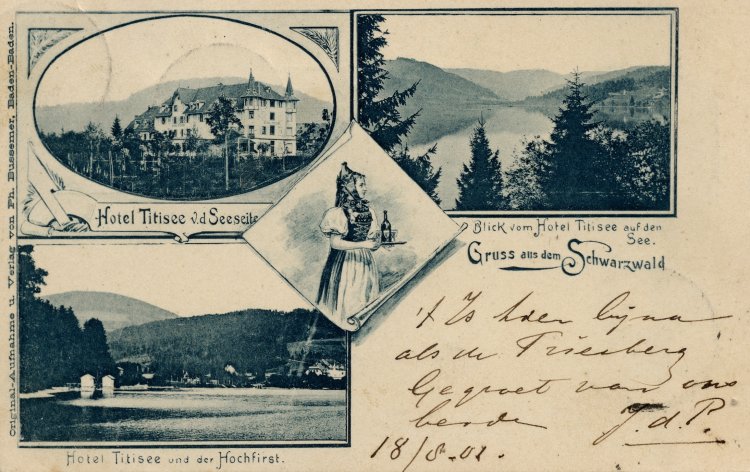 Original-Aufnahme u. Verlag von Ph. Bussemer, Baden-Baden.
Hotel Titisee v.d Seeseite
Blick vom Hotel Titisee auf den
See.
Gruss aus dem Schwarzwald
't Is hier bijna
als de Trieberg
Gegroet van ons
beide J.d.P.
18/8-01.
Hotel Titisee und der Hochfirst.